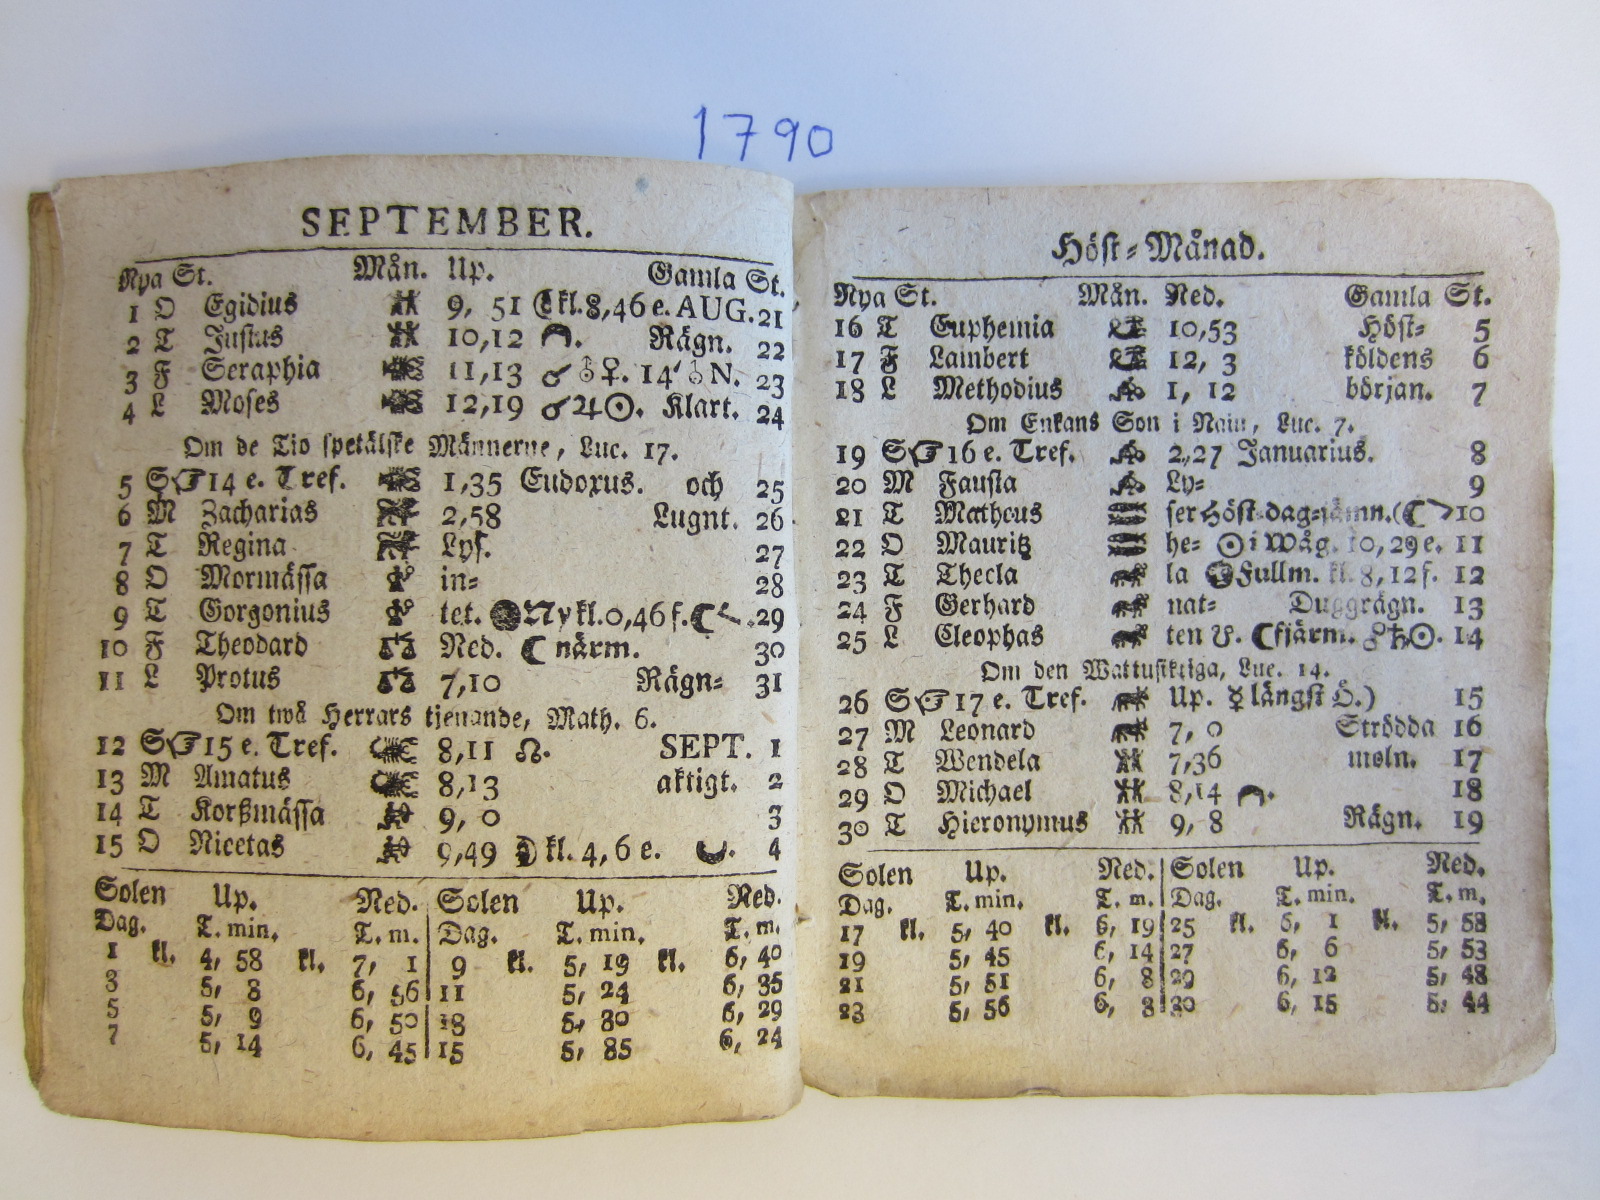 1790
SEPTEMBER.
Nya St. Mån. Up. Gamla St.
1 O Egidius 9, 51 ☾ kl. 8, 46 e. AUG. 21
2 T Justus 10,12 Rägn. 22
3 F Seraphia 11,13 ☌ ♀. 14' N. 23
4 L Moses 12,19 ☌ ♃ ☉. Klart. 24
Om de Tio spetälske Männerne, Luc. 17.
5 S ☞ 14 e. Tref. 1,35 Eudoxus. och 25
6 M Zacharias 2,58 Lugnt. 26
7 T Regina Lys. 27
8 O Mormässa in= 28
9 T Gorgonius tet. Ny kl. 0,46 f. ☾ 29
10 F Theodard Ned. ☾ närm. 30
11 L Protus 7,10 Rägn= 31
Om twå Herrars tjenande, Math. 6.
12 S ☞ 15 e. Tref. 8,11 ☊. SEPT. 1
13 M Amatus 8,13 aktigt. 2
14 T Korßmässa 9, 0 3
15 O Nicetas 9,49 ☽ kl. 4, 6 e. 4
Solen Up. Ned. Solen Up. Ned.
Dag. T. min. T. m. Dag. T. min. T. m.
1 kl. 4, 58 kl. 7, 1 9 kl. 5, 19 kl. 6, 40
3 5, 8 6, 56 11 5, 24 6, 35
5 5, 9 6, 50 13 5, 30 6, 29
7 5, 14 6, 45 15 5, 35 6, 24
Höst=Månad.
Nya St. Mån. Ned. Gamla St.
16 T Euphemia 10,53 Höst= 5
17 F Lambert 12, 3 köldens 6
18 L Methodius 1, 12 början. 7
Om Enkans Son i Nain, Luc. 7.
19 S ☞ 16 e. Tref. 2,27 Januarius. 8
20 M Fausta Ly= 9
21 T Matheus ser Höst=dag=jämn. (☾ 10
22 O Mauritz he= ☉ i Wåg. 10, 29 e. 11
23 T Thecla la Fullm. kl. 8, 12 f. 12
24 F Gerhard nat= Duggrägn. 13
25 L Cleophas ten ☋. ☾ fjärm. ☍ ♄ ☉. 14
Om den Wattusiktiga, Luc. 14.
26 S ☞ 17 e. Tref. Up. ☿ längst Ö.) 15
27 M Leonard 7, 0 Strödda 16
28 T Wendela 7,36 moln. 17
29 O Michael 8,14 18
30 T Hieronymus 9, 8 Rägn. 19
Solen Up. Ned. Solen Up. Ned.
Dag. T. min. T. m. Dag. T. min. T. m.
17 kl. 5, 40 kl. 6, 19 25 kl. 6, 1 kl. 5, 58
19 5, 45 6, 14 27 6, 6 5, 53
21 5, 51 6, 8 29 6, 12 5, 48
23 5, 56 6, 3 30 6, 15 5, 44